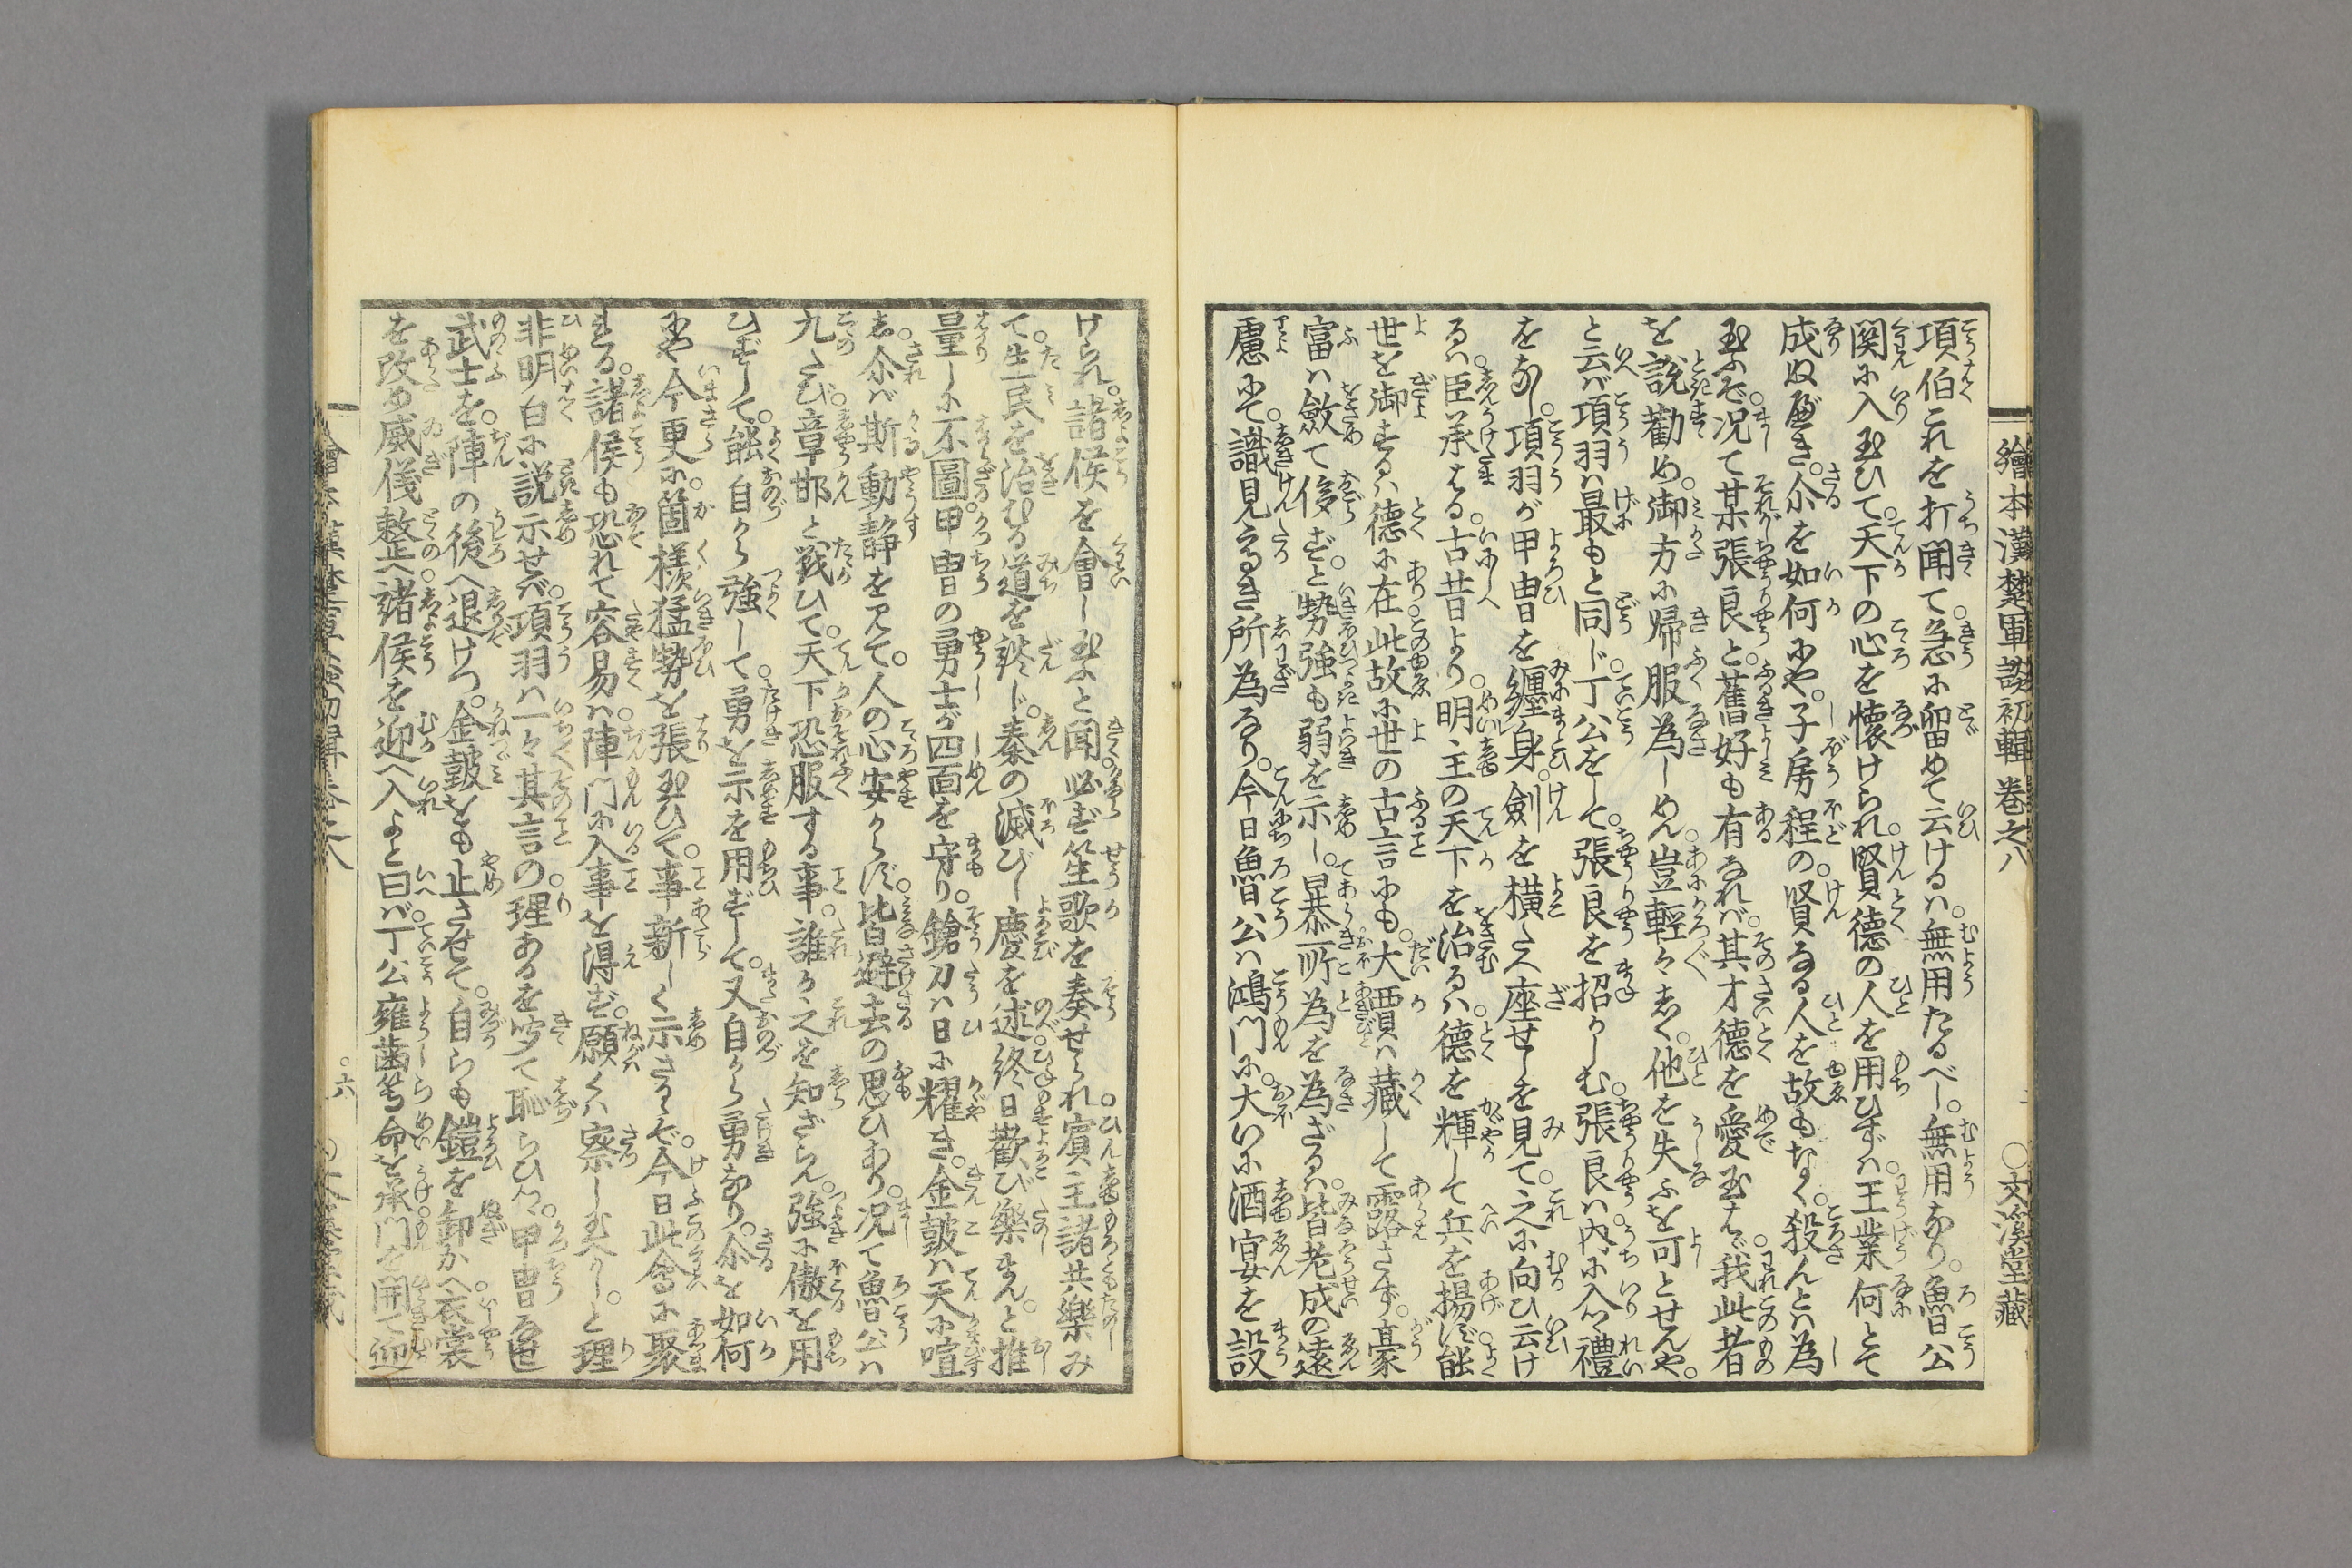 繪本漢楚軍談初輯 巻之八 ○文溪堂藏
項伯これを打聞て。急に留めて云けるハ。無用たるべし。無用なり。魯公
関に入玉ひて。天下の心を懐けられ。賢德の人を用ひずハ。王業何とて
成ぬべき。尒を如何にや。子房程の。賢なる人を故もなく。殺んとハ為
玉ふぞ。况て某張良と。舊好も有なれバ。其才德を愛玉はゞ。我此者
を說勸め。御方に帰服為しめん。豈輕々しく。他を失ふを可とせんや。
と云バ。項羽ハ最もと同じ。丁公をして。張良を招かしむ。張良ハ内に入つゝ禮
をなし。項羽が甲冑を纏身。劍を横たへ座せしを見て。之に向ひ云け
るハ。臣承はる。古昔より。明主の天下を治るハ。德を輝して兵を揚ず。能
世を御するハ德に在。此故に世の古言にも。大賈ハ藏して露さず。豪
富ハ斂て侈ず。と勢強も弱を示し。暴所為を為ざるハ。皆老成の遠
慮にて。識見るき所為なり。今日魯公ハ鴻門に。大いに酒宴を設
けられ。諸侯を會し玉ふと聞。必ず笙歌を奏せられ。賓主諸共樂み
て。生民を治むる道を談じ。秦の滅びし慶を述。終日歡び樂まんと。推
量しに不圖。甲冑の勇士が四面を守り。鎗刀ハ日に耀き。金鼓ハ天に喧
し。尒バ斯動静を見て。人の心安からず。皆避去の思ひあり。况て魯公ハ
九たび。章邯と戰ひて。天下恐服する事。誰か之を知ざらん。強に傲を用
ひずして。能自から強して。勇を示を用ずして。又自から勇なり。尒を如何
にや今更に。箇樣猛勢を張玉ひて。事新しく示さるゝぞ。今日此會に聚
まる。諸侯も恐れて容易ハ。陣門に入事を得ず。願くハ察し玉へかし。と理
非明白に説示せバ。項羽ハ一々其言の。理あるを聞て恥らひつゝ。甲冑
武士を。陣の後へ退けつ。金鼓をも止させて。自らも鎧を卸かへ衣裳
を改め威儀整へ。諸侯を迎へ入よと曰バ。丁公雍齒等命を承。門を開て迎
六